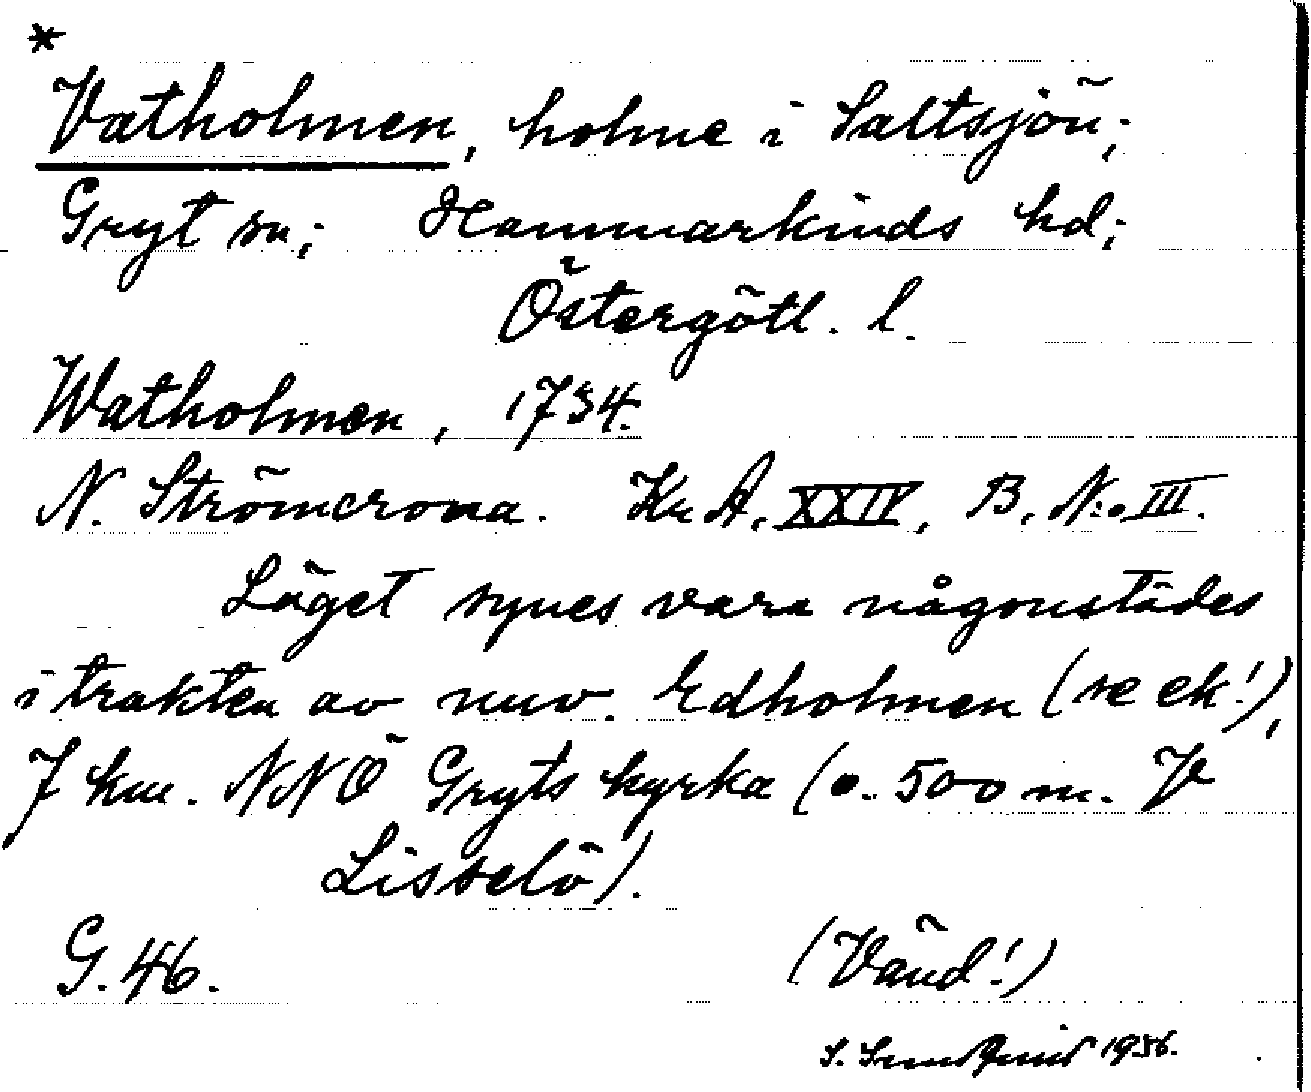 *
Vatholmen, holme i Saltsjön;
Gryt sn; Hammarkinds hd;
Östergötl. l.
Watholmen, 1734.
N. Strömcrona. Kr. A. XXIV, B, N:o III.
Läget synes vara någonstädes
i trakten av nuv. Edholmen (se ek!),
7 km. NNÖ Gryts kyrka (c. 500 m. V
Lisselö).
G. 46. (Vänd!)
S. Sundqvist 1956.